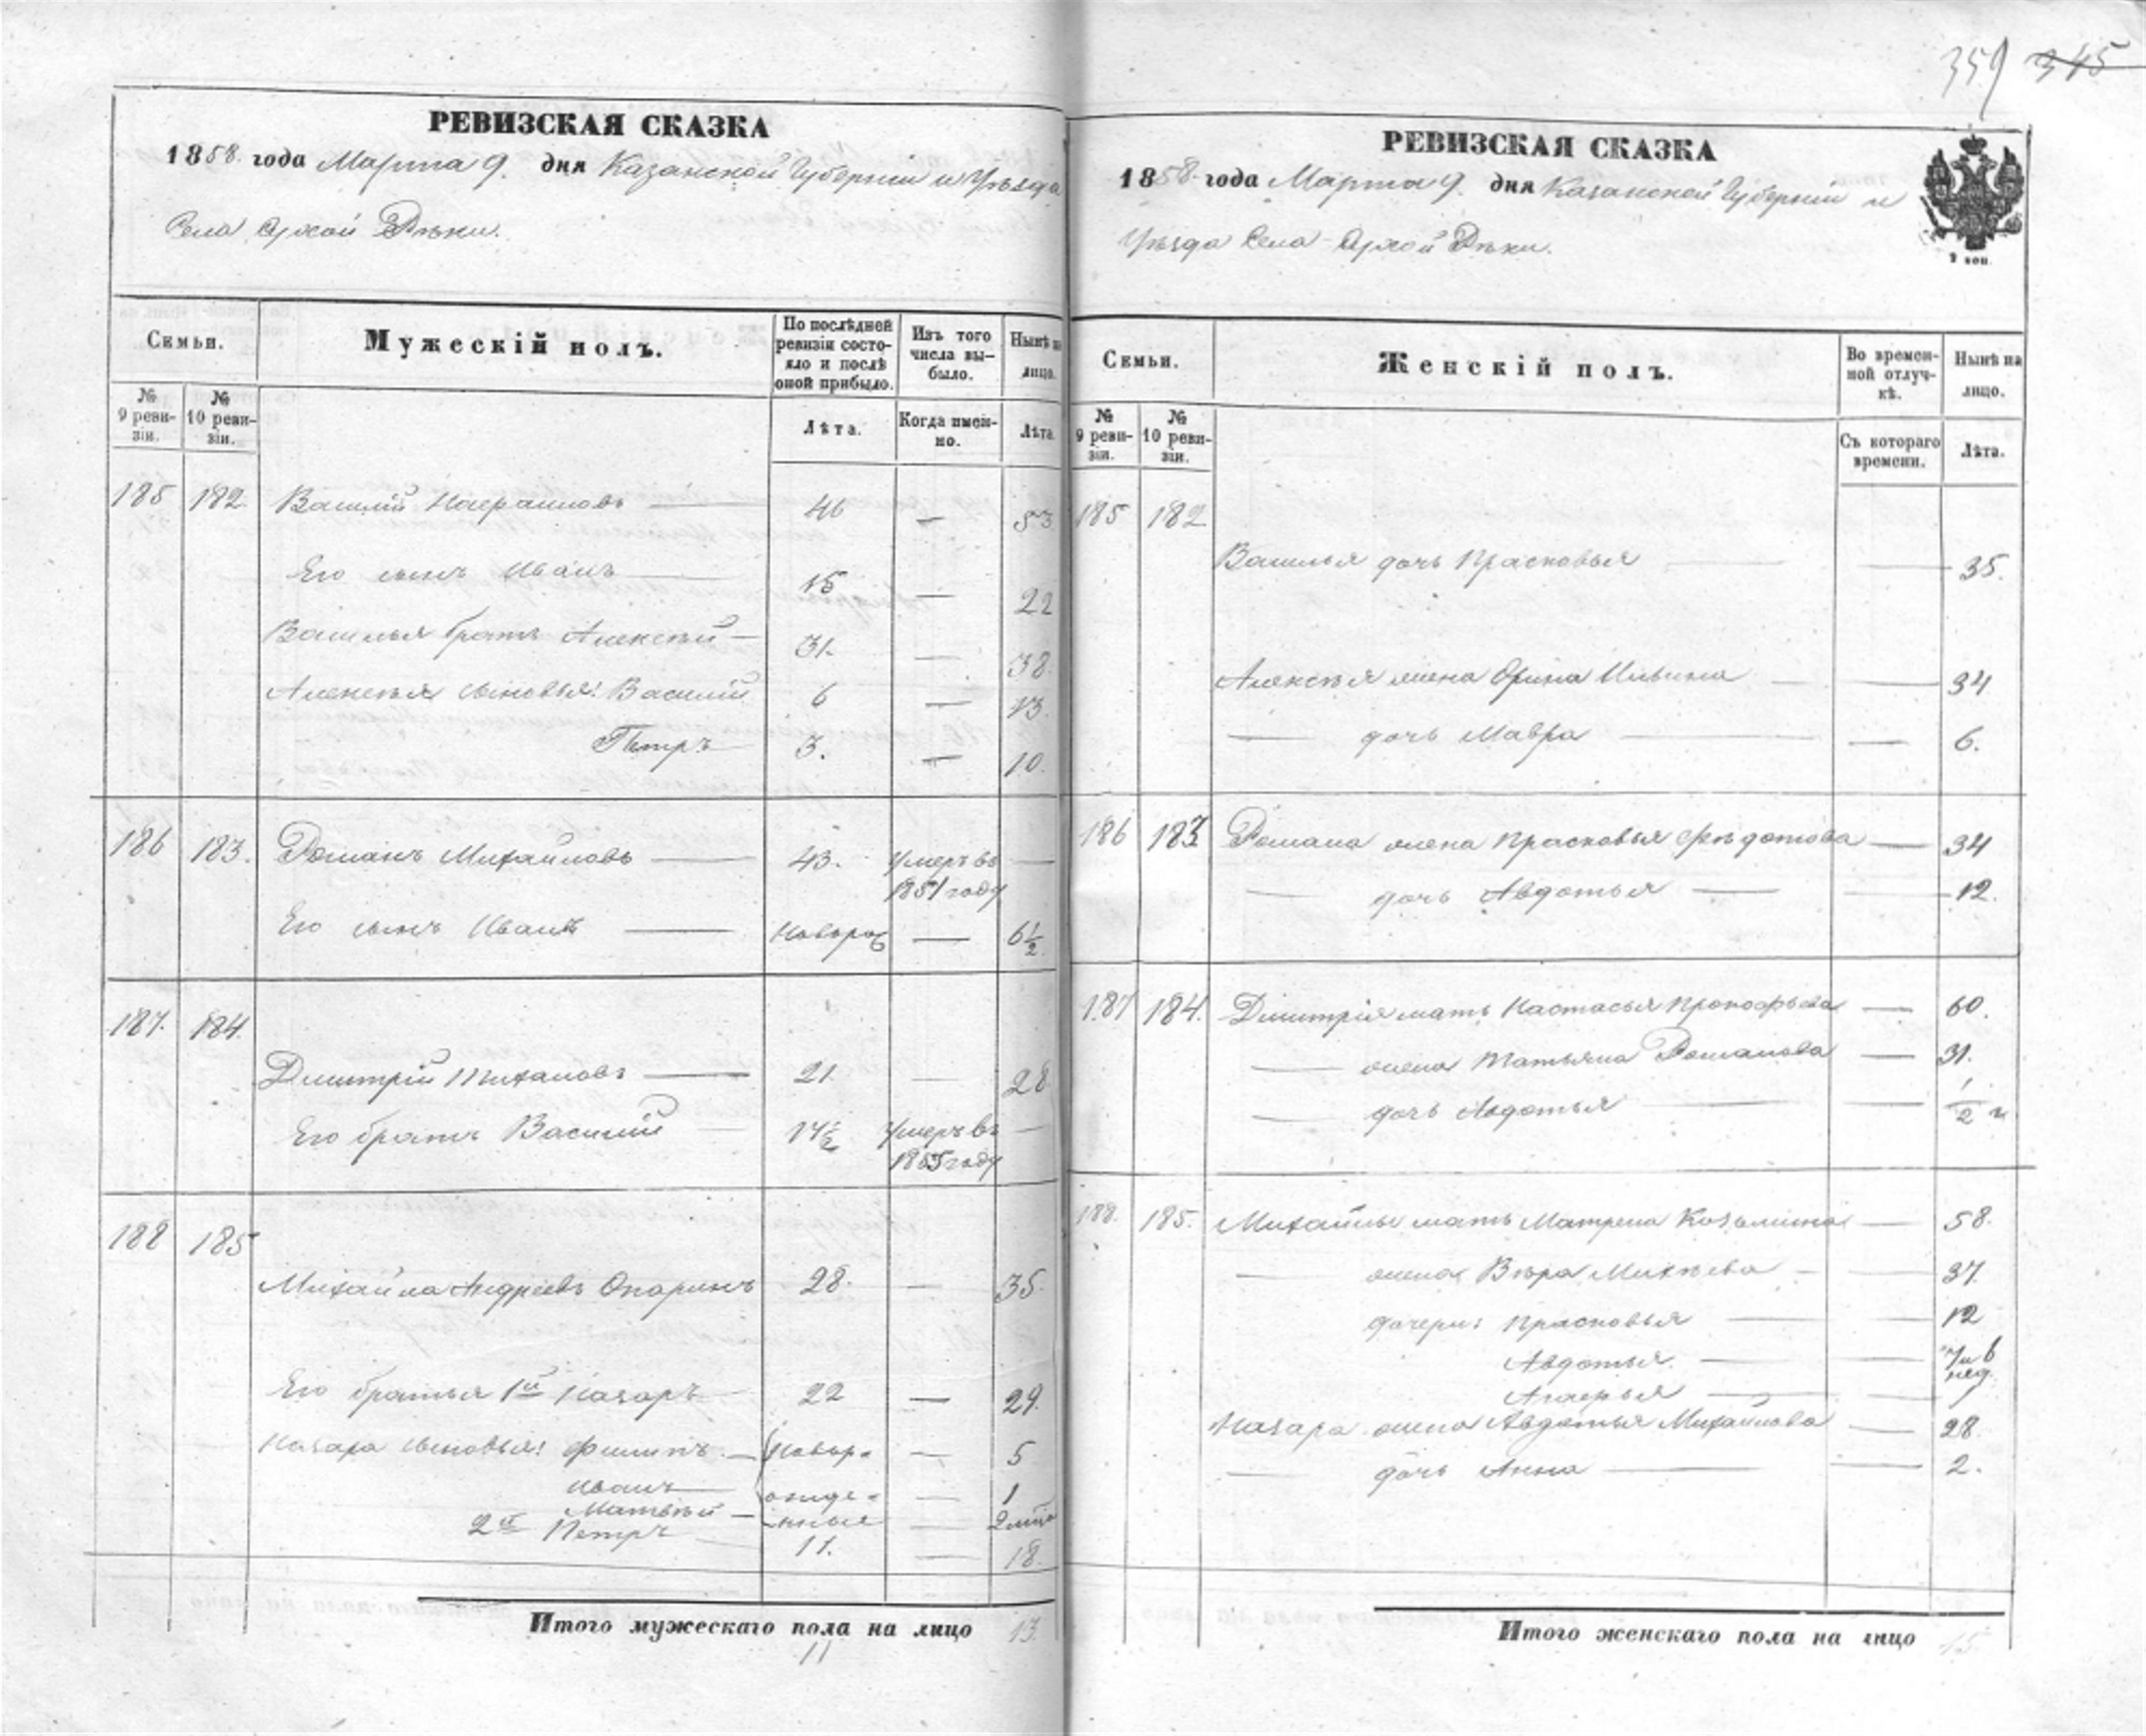 359 345
РЕВИЗСКАЯ СКАЗКА
1858. года Марта 9. дня Казанской Губерніи и Уѣзда
Села Сухой Рѣки.
Семьи.
Мужескій полъ.
По послѣдней ревизіи состо-
яло и послѣ
оной прибыло.
Изъ того
числа вы-
было.
Нынѣ на
лицо.
№
9 реви-
зіи.
№
10 реви-
зіи.
Лѣта.
Когда имен-
но.
Лѣта.
185 182. Василій — 46 — 53
Его сынъ Иванъ — 15 — 22
Василья братъ Алексѣй — 31. — 38.
Алексѣя сыновья: Василій 6 — 13.
Петръ 3. — 10.
186 183. Романъ Михайловъ — 43. Умеръ въ —
1851 году
Его сынъ Иванъ — новорож — 6 1/2
187. 184.
Дмитрій — 21. — 28
Его братъ Василій — 14 1/2 Умеръ въ —
1855 году
188 185
Михайла Андреевъ Опаринъ 28. — 35.
Его братья 1й Назаръ — 22 — 29.
Назара сыновья: Филипъ. — новор- — 5
Иванъ — ожде- — 1
Матвѣй — -нные — 2 мѣся
2й Петръ — 11. — 18.
Итого мужескаго пола на лицо 13
11
РЕВИЗСКАЯ СКАЗКА
1858. года Марта 9. дня Казанской Губерніи и
Уѣзда Села Сухой Рѣки.
2 коп.
Семьи.
Женскій полъ.
Во времен-
ной отлуч-
кѣ.
Нынѣ на
лицо.
№
9 реви-
зіи.
№
10 реви-
зіи.
Съ котораго
времени.
Лѣта.
185 182
Василья дочь Прасковья — — 35.
Алексѣя жена Орина Ильина — — 34
— дочь Мавра — — 6.
186 183 Романа жена Прасковья Федотова — 34
— дочь Авдотья — — 12.
187 184. Дмитрія мать Настасья Прокофьева — 60.
— жена Татьяна Романова — 31.
— дочь Авдотья — — 1/2 г
188. 185. Михайлы мать Матрена Козьмина — 58.
— жена Вѣра Михѣева — — 37.
дочери: Прасковья — — 12
Авдотья. — — 7 и 6
нед.
— — 1
Назара жена Авдотья Михайлова — 28
— дочь Анна — — 2.
Итого женскаго пола на лицо 15